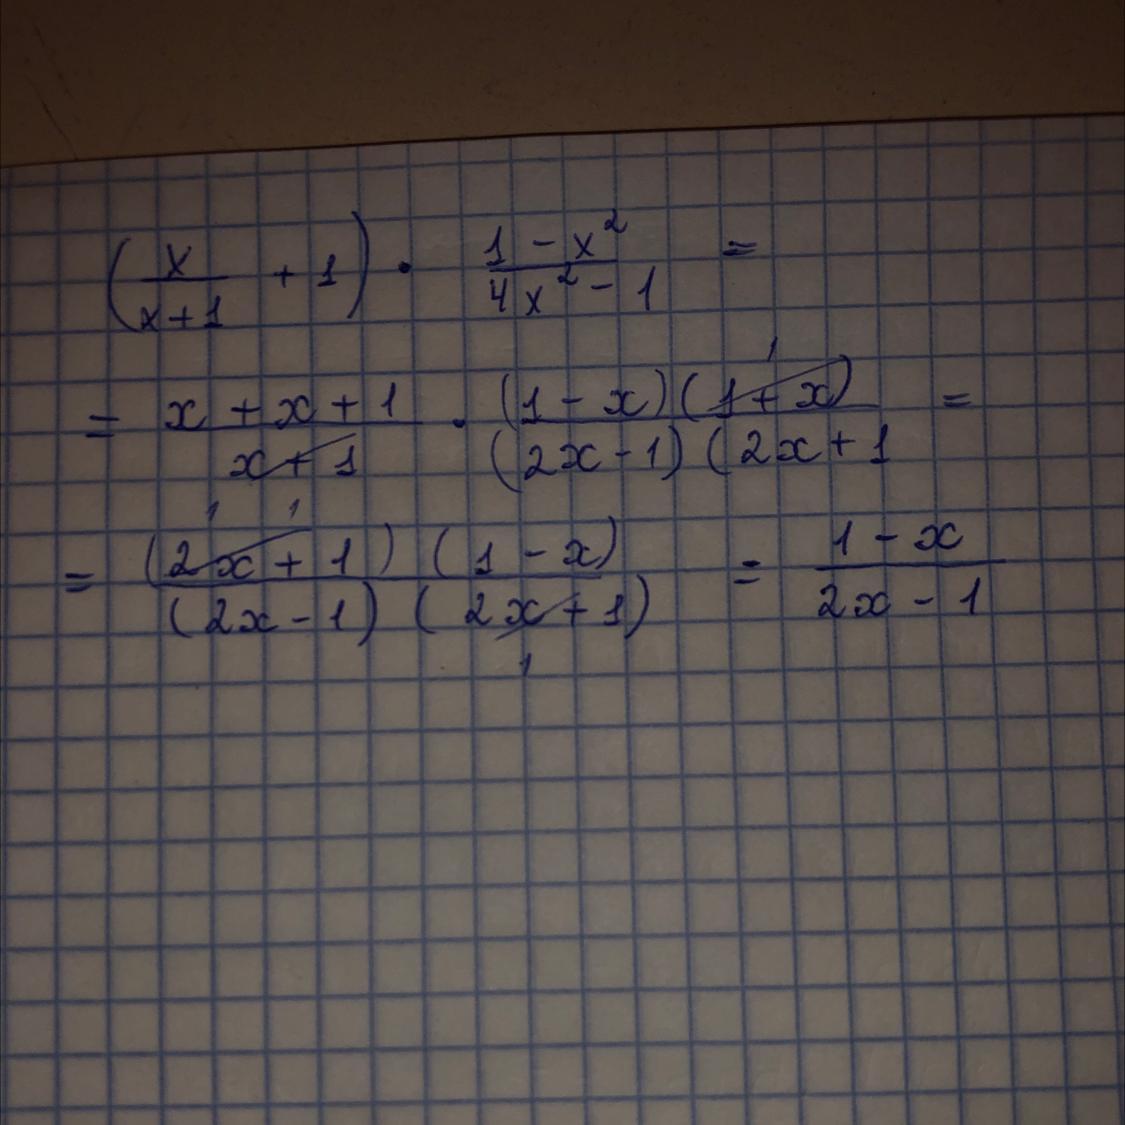 (x/(x+1) + 1) · (1 - x²)/(4x² - 1) =
= (x + x + 1)/(x + 1) · (1 - x)(1 + x)/(2x - 1)(2x + 1 =
= (2x + 1)(1 - x)/(2x - 1)(2x + 1) = (1 - x)/(2x - 1)